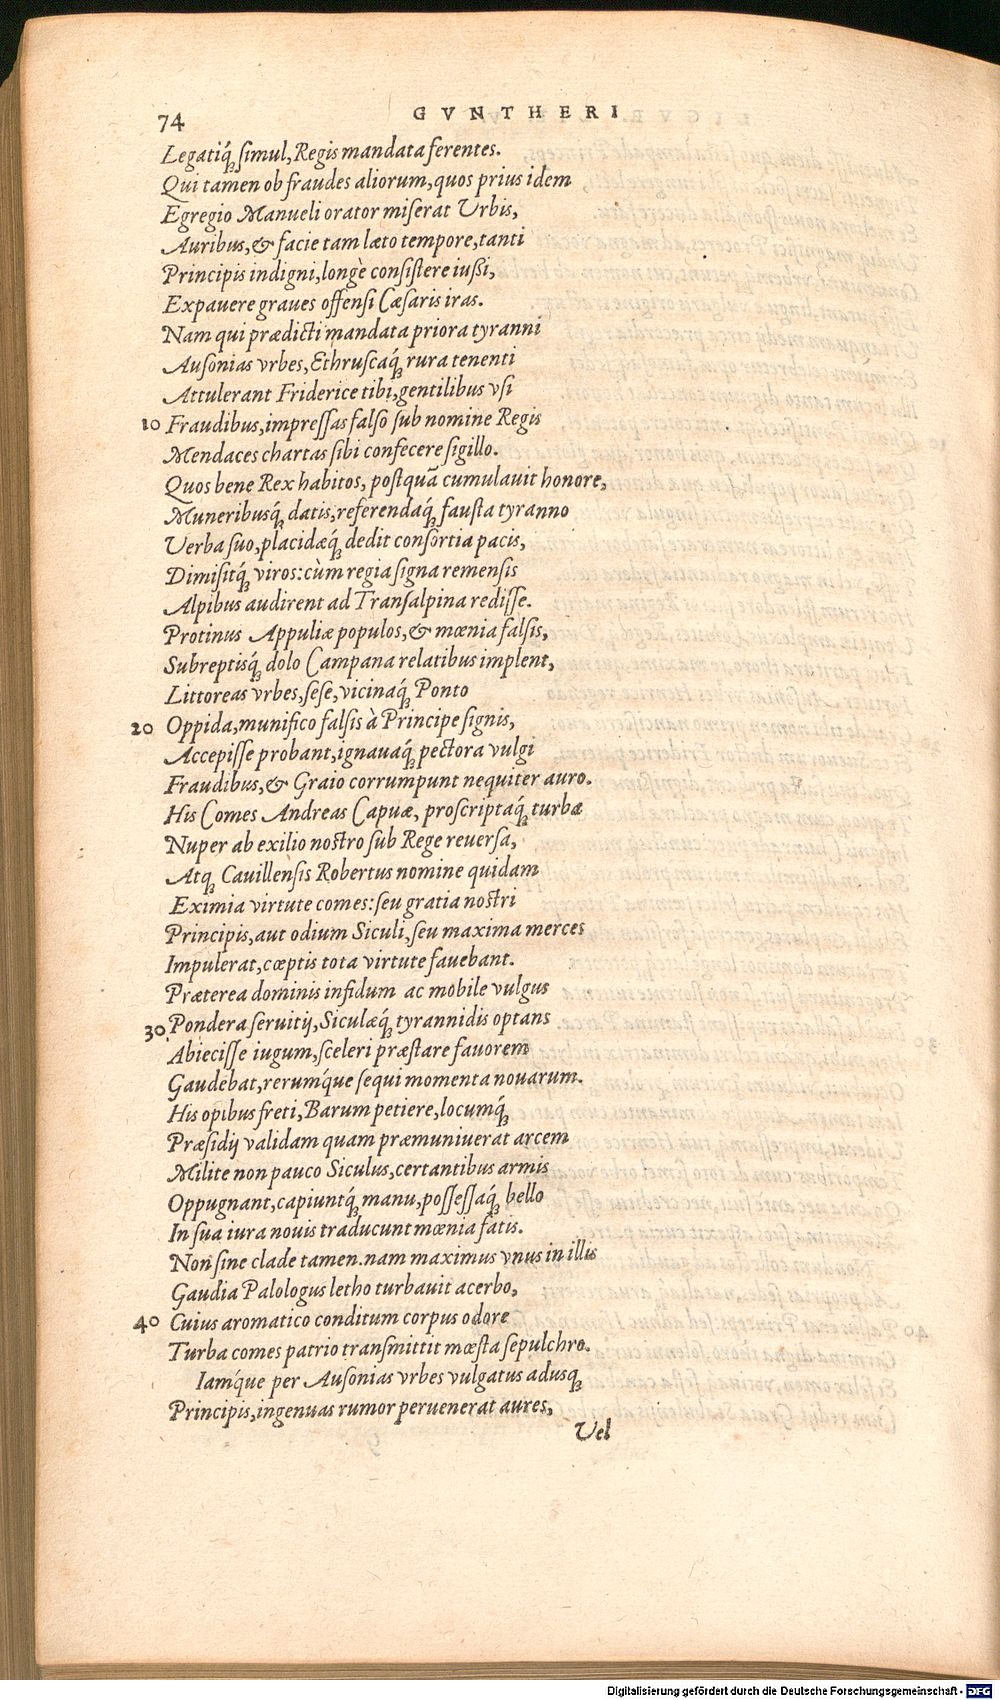 74 GVNTHERI
Legatiq́ꝫ simul, Regis mandata ferentes.
Qui tamen ob fraudes aliorum, quos prius idem
Egregio Manueli orator miserat Urbis,
Auribus, & facie tam læto tempore, tanti
Principis indigni, longè consistere iußi,
Expauere graues offensi Cæsaris iras.
Nam qui prædicti mandata priora tyranni
Ausonias vrbes, Ethruscaq́ꝫ rura tenenti
Attulerant Friderice tibi, gentilibus vsi
10 Fraudibus, impressas falso sub nomine Regis
Mendaces chartas sibi confecere sigillo.
Quos bene Rex habitos, postquā cumulauit honore,
Muneribusq́ꝫ datis, referendaq́ꝫ fausta tyranno
Verba suo, placidæq́ꝫ dedit consortia pacis,
Dimisitq́ꝫ viros: cùm regia signa remensis
Alpibus audirent ad Transalpina redisse.
Protinus Appuliæ populos, & mœnia falsis,
Subreptisq́ꝫ dolo Campana relatibus implent,
Littoreas vrbes, sese, vicinaq́ꝫ Ponto
20 Oppida, munifico falsis à Principe signis,
Accepisse probant, ignauaq́ꝫ pectora vulgi
Fraudibus, & Graio corrumpunt nequiter auro.
His Comes Andreas Capuæ, proscriptaq́ꝫ turba
Nuper ab exilio nostro sub Rege reuersa,
Atqꝫ Cauillensis Robertus nomine quidam
Eximia virtute comes: seu gratia nostri
Principis, aut odium Siculi, seu maxima merces
Impulerat, cœptis tota virtute fauebant.
Præterea dominis infidum ac mobile vulgus
30 Pondera seruitij, Siculæq́ꝫ tyrannidis optans
Abiecisse iugum, sceleri præstare fauorem
Gaudebat, reruḿque sequi momenta nouarum.
His opibus freti, Barum petiere, locumq́ꝫ
Præsidij validam quam præmuniuerat arcem
Milite non pauco Siculus, certantibus armis
Oppugnant, capiuntq́ꝫ manu, possessaq́ꝫ bello
In sua iura nouis traducunt mœnia fatis.
Non sine clade tamen. nam maximus vnus in illis
Gaudia Palologus letho turbauit acerbo,
40 Cuius aromatico conditum corpus odore
Turba comes patrio transmittit mœsta sepulchro.
Iamque per Ausonias vrbes vulgatus adusqꝫ
Principis, ingenuas rumor peruenerat aures,
Vel
Digitalisierung gefördert durch die Deutsche Forschungsgemeinschaft - DFG